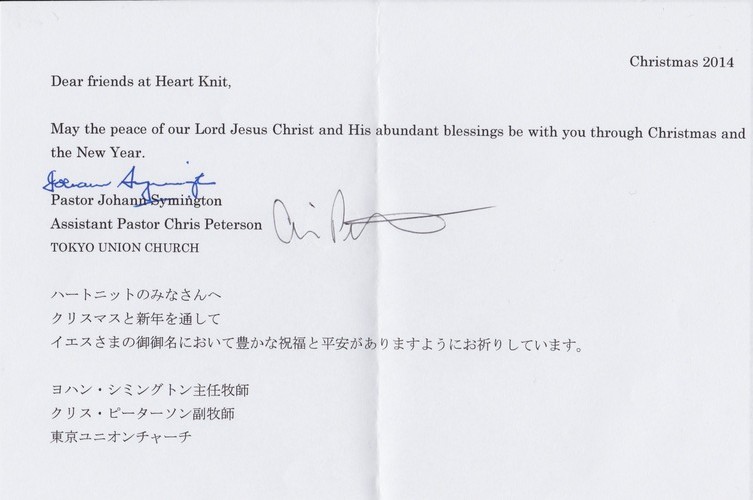 Christmas 2014
Dear friends at Heart Knit,
May the peace of our Lord Jesus Christ and His abundant blessings be with you through Christmas and
the New Year.
Johann Symington
Pastor Johann Symington
Assistant Pastor Chris Peterson
TOKYO UNION CHURCH
ハートニットのみなさんへ
クリスマスと新年を通して
イエスさまの御御名において豊かな祝福と平安がありますようにお祈りしています。
ヨハン・シミングトン主任牧師
クリス・ピーターソン副牧師
東京ユニオンチャーチ